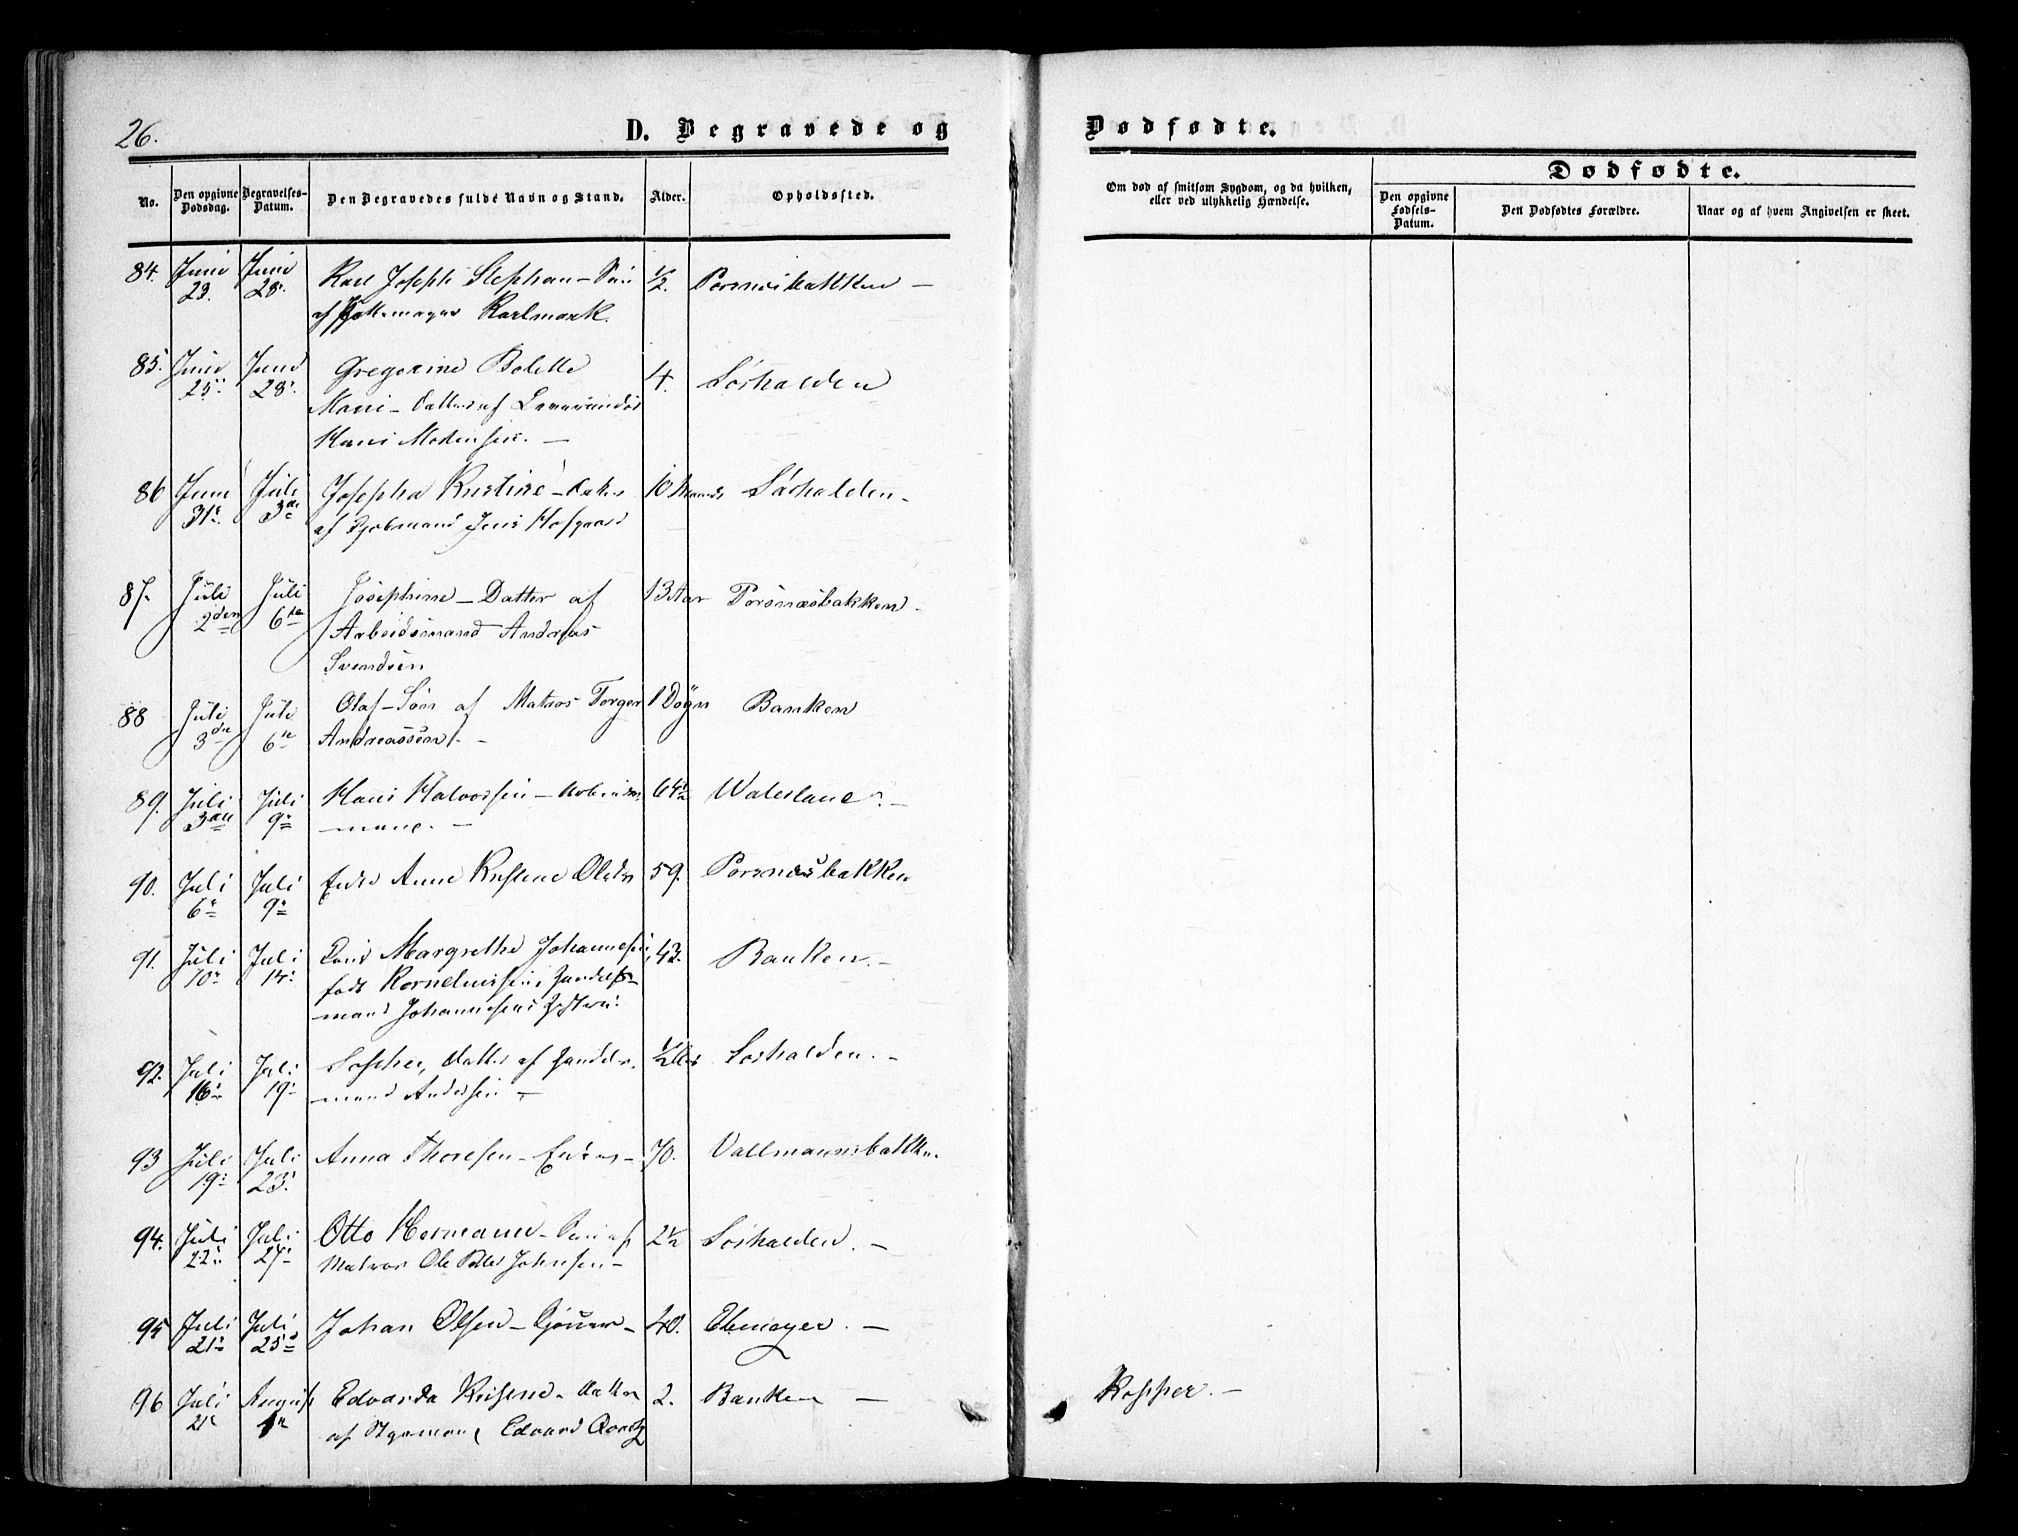 26.
D. Begravede og
Dødfødte.
Dødfødte.
No.
Den opgivne Dødsdag.
Begravelses-Datum.
Den Begravedes fulde Navn og Stand.
Alder.
Opholdssted.
Om død af smitsom Sygdom, og da hvilken,
eller ved ulykkelig Hændelse.
Den opgivne Fødsels-Datum.
Den Dødfødtes Forældre.
Naar og af hvem Angivelsen er skeet.
84. Juni Juni Karl Joseph Stephan - Søn 1/2. Porsnæsbakken -
23. 28. af Karlmark.
85. Juni Juni Gregorine Bolette 4. Sørhalden
25 28. Marie - Datter af
Hans Madsensen. -
86 Juni Juli Josepha Kristine - Datter 10 Maaneder Sørhalden -
31 3die af Jens Hofgaard
87. Juli Juli Josephine - Datter af 13 Aar Porsnæsbakken -
2den 6te Arbeidsmand Andreas
Svendsen
88 Juli Juli Olaf - Søn af Matros Torger 1 Døgn Banken
3die 6te Andreassen. -
89. Juli Juli Hans Halvorsen - Arbeids- 64 -
3die 9de mand. -
90. Juli Juli Enke Anne Kristine Olsdr 59. Porsnæsbakken
6te 9de
91. Juli Juli Margrethe Johannesen, 42. Banken. -
10 14 født Korneliussen, Handels-
mand Johannesens Hustru.
92. Juli Juli Sophie, Datter af Handels- 1/2 Aar Sørhalden. -
16 19 mand Andersen -
93 Juli Juli Anna Thoresen - Enke - 70. Vallmannsbakken.
19 23.
94. Juli Juli Otto Hermann - Søn af 2 1/2 Sørhalden. -
22 27 Matros Ole Johnsen -
95 Juli Juli Johan Olsen - 40. -
21 25
96 Juli August Edvarda - Datter 2. Banken -
21 1 af Styrmand Edvard
Kopper. -